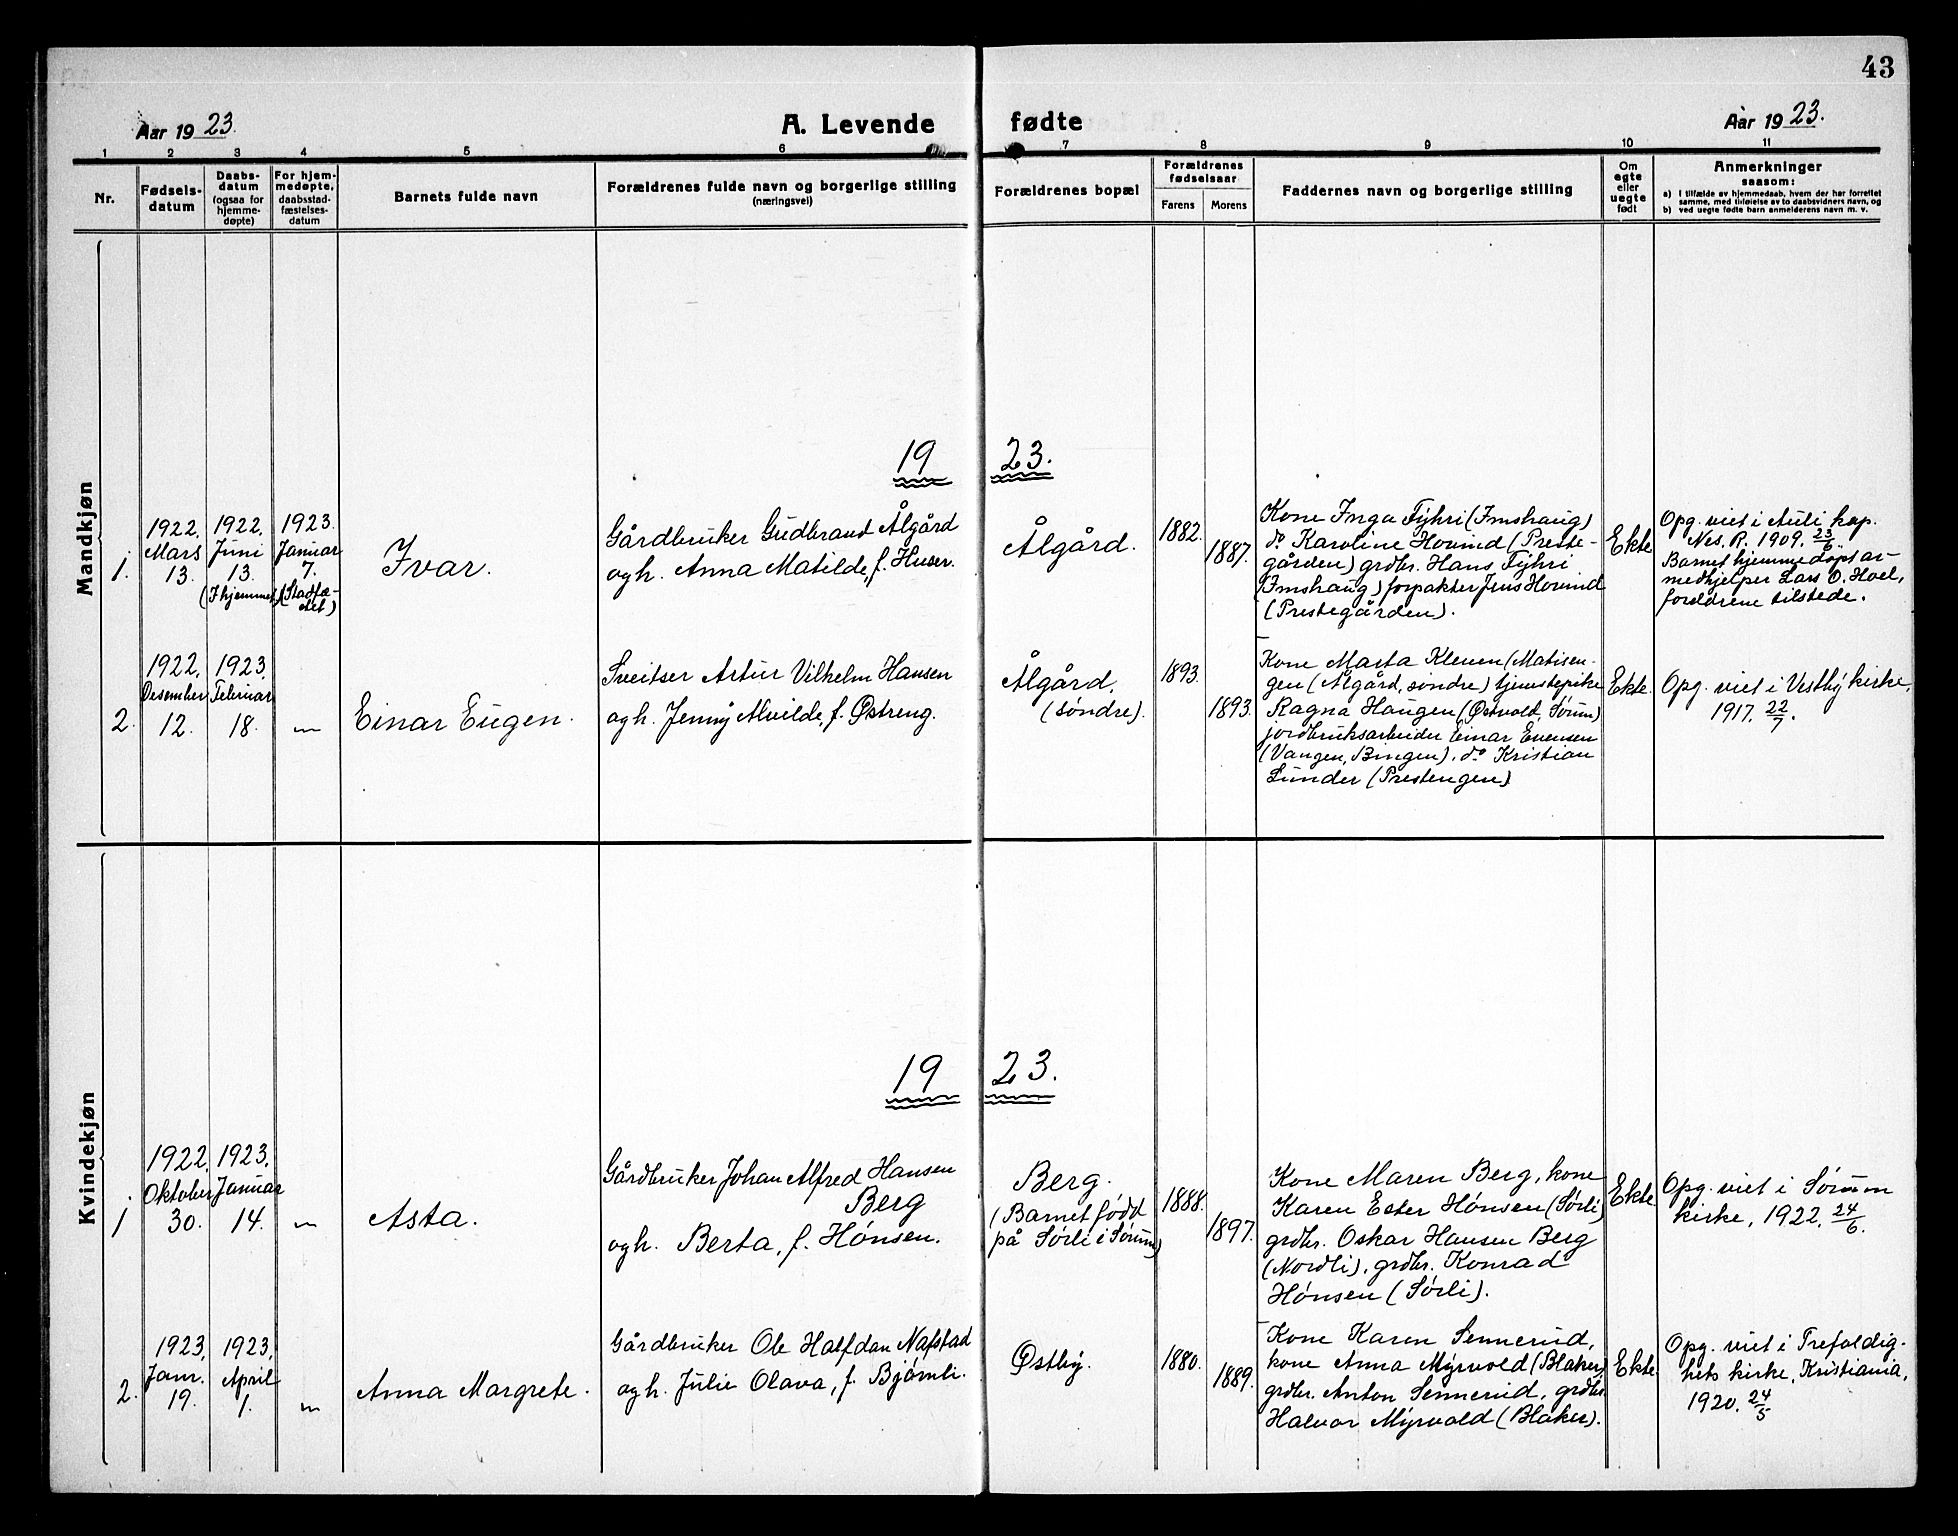 43
Aar 1923.
A. Levende
fødte
Aar 1923.
1
2
3
4
5
6
7
8
9
10
11
Nr.
Fødsels-
datum
Daabs-
datum
(ogsaa for
hjemme-
døpte)
For hjem-
medøpte,
daabsstad-
fæstelses-
datum
Barnets fulde navn
Forældrenes fulde navn og borgerlige stilling
(næringsvei)
Forældrenes bopæl
Forældrenes
fødselsaar
Farens
Morens
Faddernes navn og borgerlige stilling
Om
egte
eller
uegte
født
Anmerkninger
saasom:
a) I tilfælde av hjemmedaab, hvem der har forrettet
samme, med tilføielse av to daabsvidners navn, og
b) ved uegte fødte barn anmelderens navn m. v.
Mandkjøn
19 23.
1.
1922.
Mars
13.
1922.
Juni
13.
(I hjemmet)
1923.
Januar
7.
(Stadfæ-
stet)
Ivar.
Gårdbruker Gudbrand Ålgård
og h. Anna Matilde, f. Huser.
Ålgård.
1882.
1887.
Kone Inga Fyhri (Imshaug)
do Karoline Hovind (Preste-
gården) grdbr. Hans Fyhri
(Imshaug) forpakter Jens Hovind
(Prestegården).
Ekte
Opg. viet i Auli kap.
Nes. R. 1909. 23/6.
Barnet hjemmedøpt av
medhjelper Lars O. Hoel,
foreldrene tilstede.
2.
1922.
Desember
12.
1923.
Februar
18.
—
Einar Eugen.
Sveitser Artur Vilhelm Hansen
og h. Jenny Alvilde, f. Østreng.
Ålgård.
(søndre).
1893.
1893.
Kone Marta Kleven (Matisen-
gen (Ålgård, søndre) tjenestepike
Ragna Haugen (Østvold, Sørum)
jordbruksarbeider Einar Evensen
(Vangen, Bingen), do Kristian
Sunder (Prestengen)
Ekte.
Opg. viet i Vestby kirke,
1917. 22/7.
Kvindekjøn
19 23.
1
1922.
Oktober
30.
1923.
Januar
14.
—
Asta.
Gårdbruker Johan Alfred Hansen
Berg
og h. Berta, f. Hønsen.
Berg.
(Barnet født
på Sørli i Sørum)
1888.
1897.
Kone Maren Berg, kone
Karen Ester Hønsen (Sørli)
grdbr. Oskar Hansen Berg
(Nordli), grdbr. Konrad
Hønsen (Sørli).
Ekte.
Opg. viet i Sørum
kirke, 1922. 24/6.
2.
1923.
Janr.
19.
1923.
April
1.
—
Anna Margrete.
Gårdbruker Ole Halfdan Nafstad
og h. Julie Olava, f. Bjørnli.
Østby.
1880.
1889.
Kone Karen Sennerud,
kone Anna Myrvold (Blaker),
grdbr. Anton Sennerud, grdbr.
Halvor Myrvold (Blaker).
Ekte.
Opg. viet i Trefoldig-
hets kirke, Kristiania,
1920. 24/5